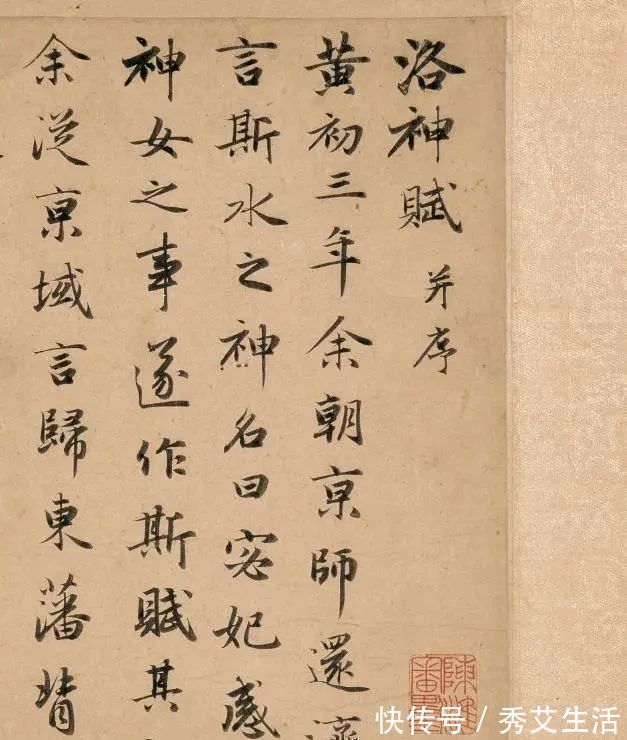 洛神賦 并序
黃初三年余朝亰師還
言斯水之神名曰宓妃感
神女之事遂作斯賦其
余從亰域言歸東藩背
快传号 / 秀艾生活